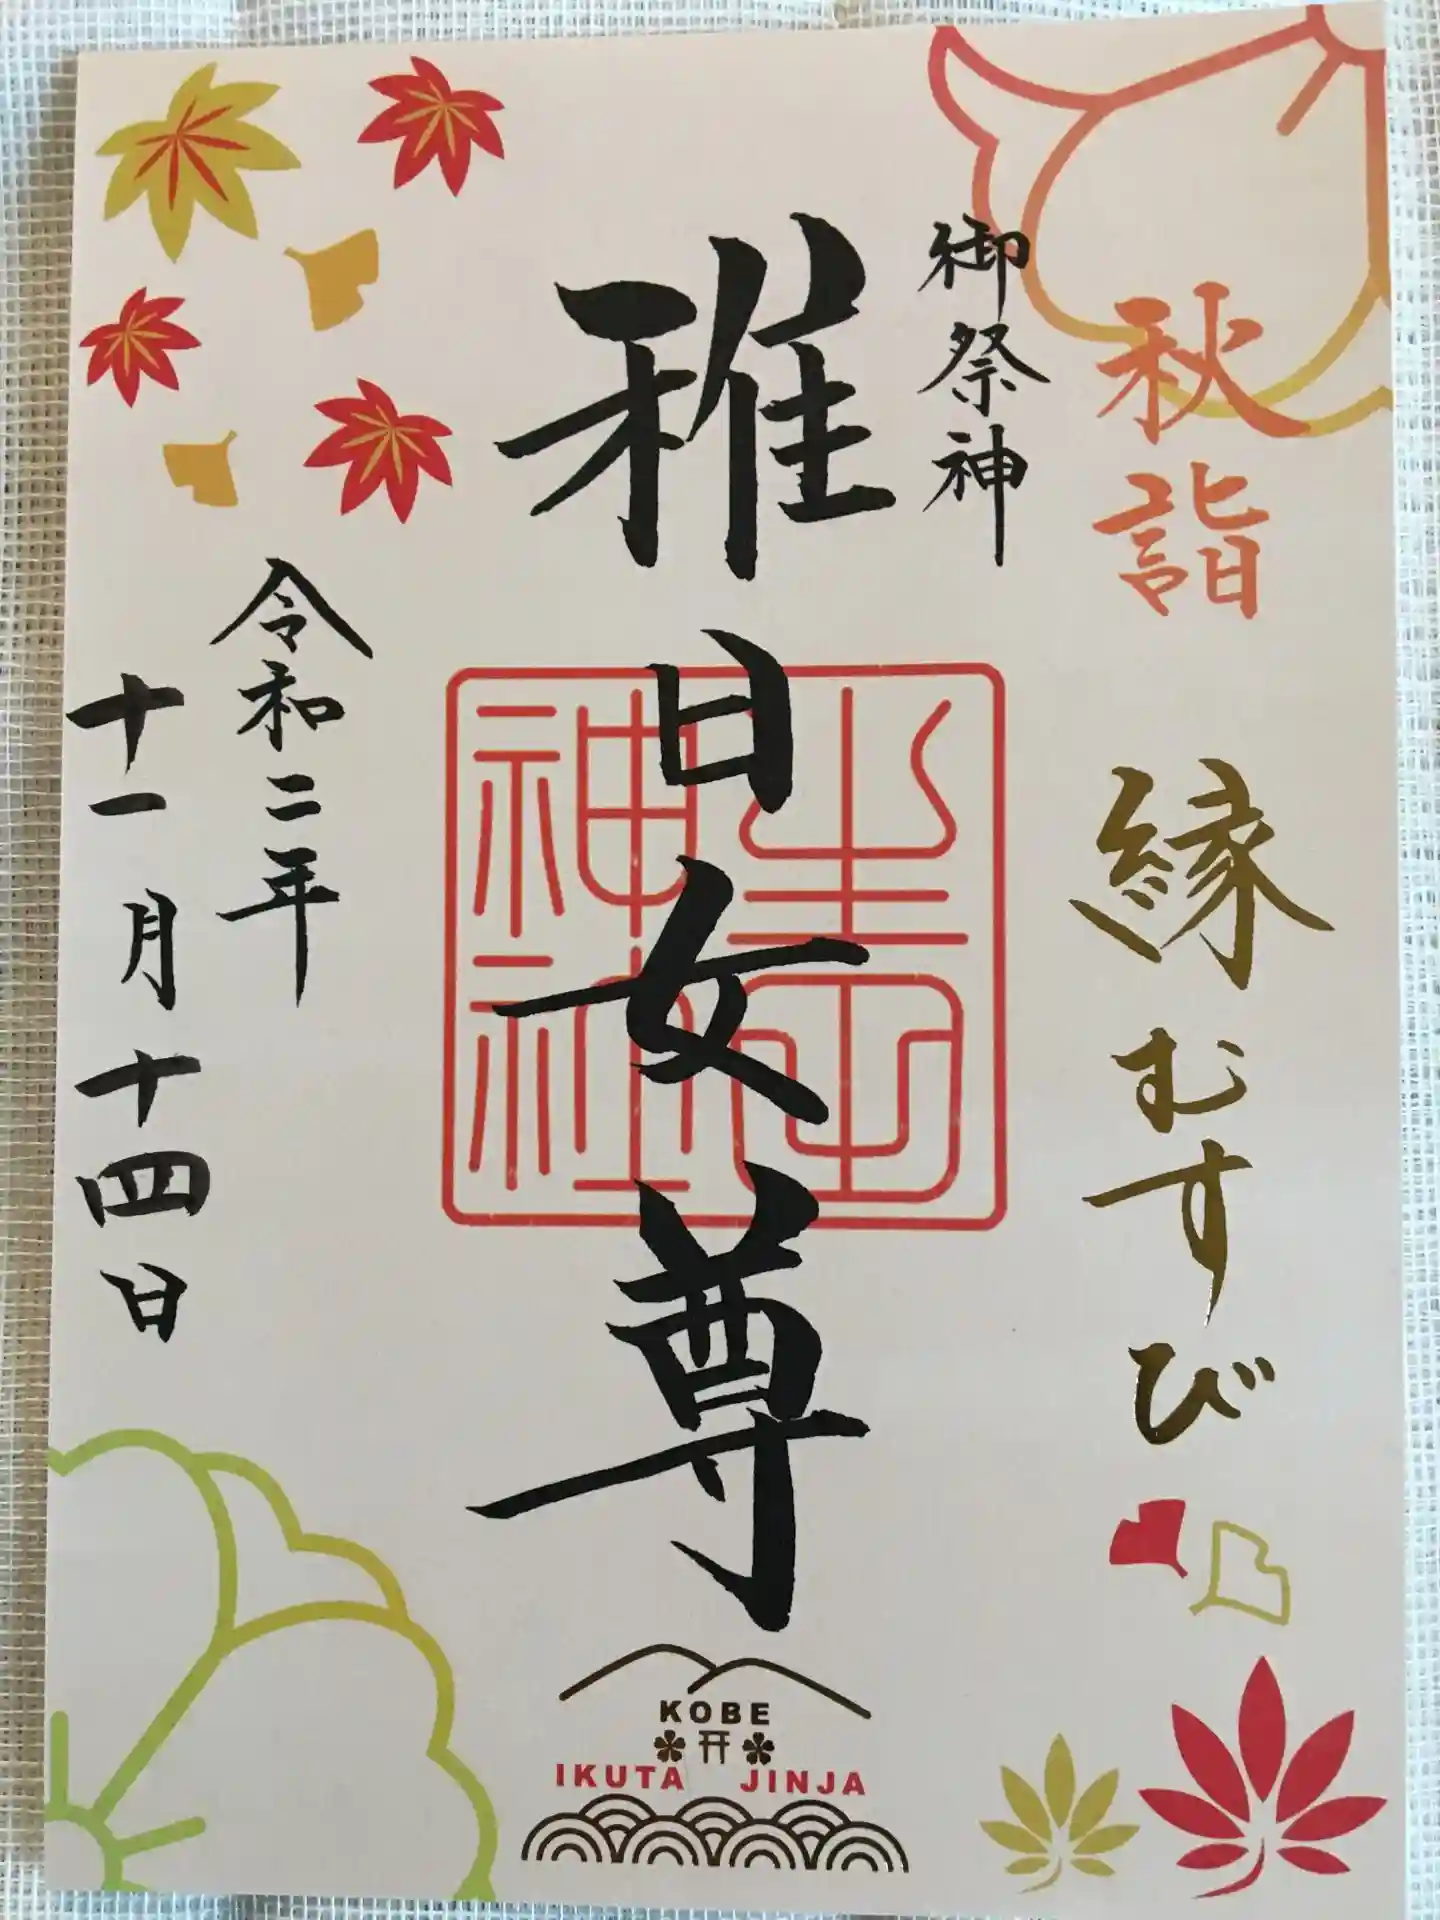 秋詣　縁むすび
御祭神
稚日女尊
生田神社
令和二年
十一月十四日
KOBE
IKUTA JINJA